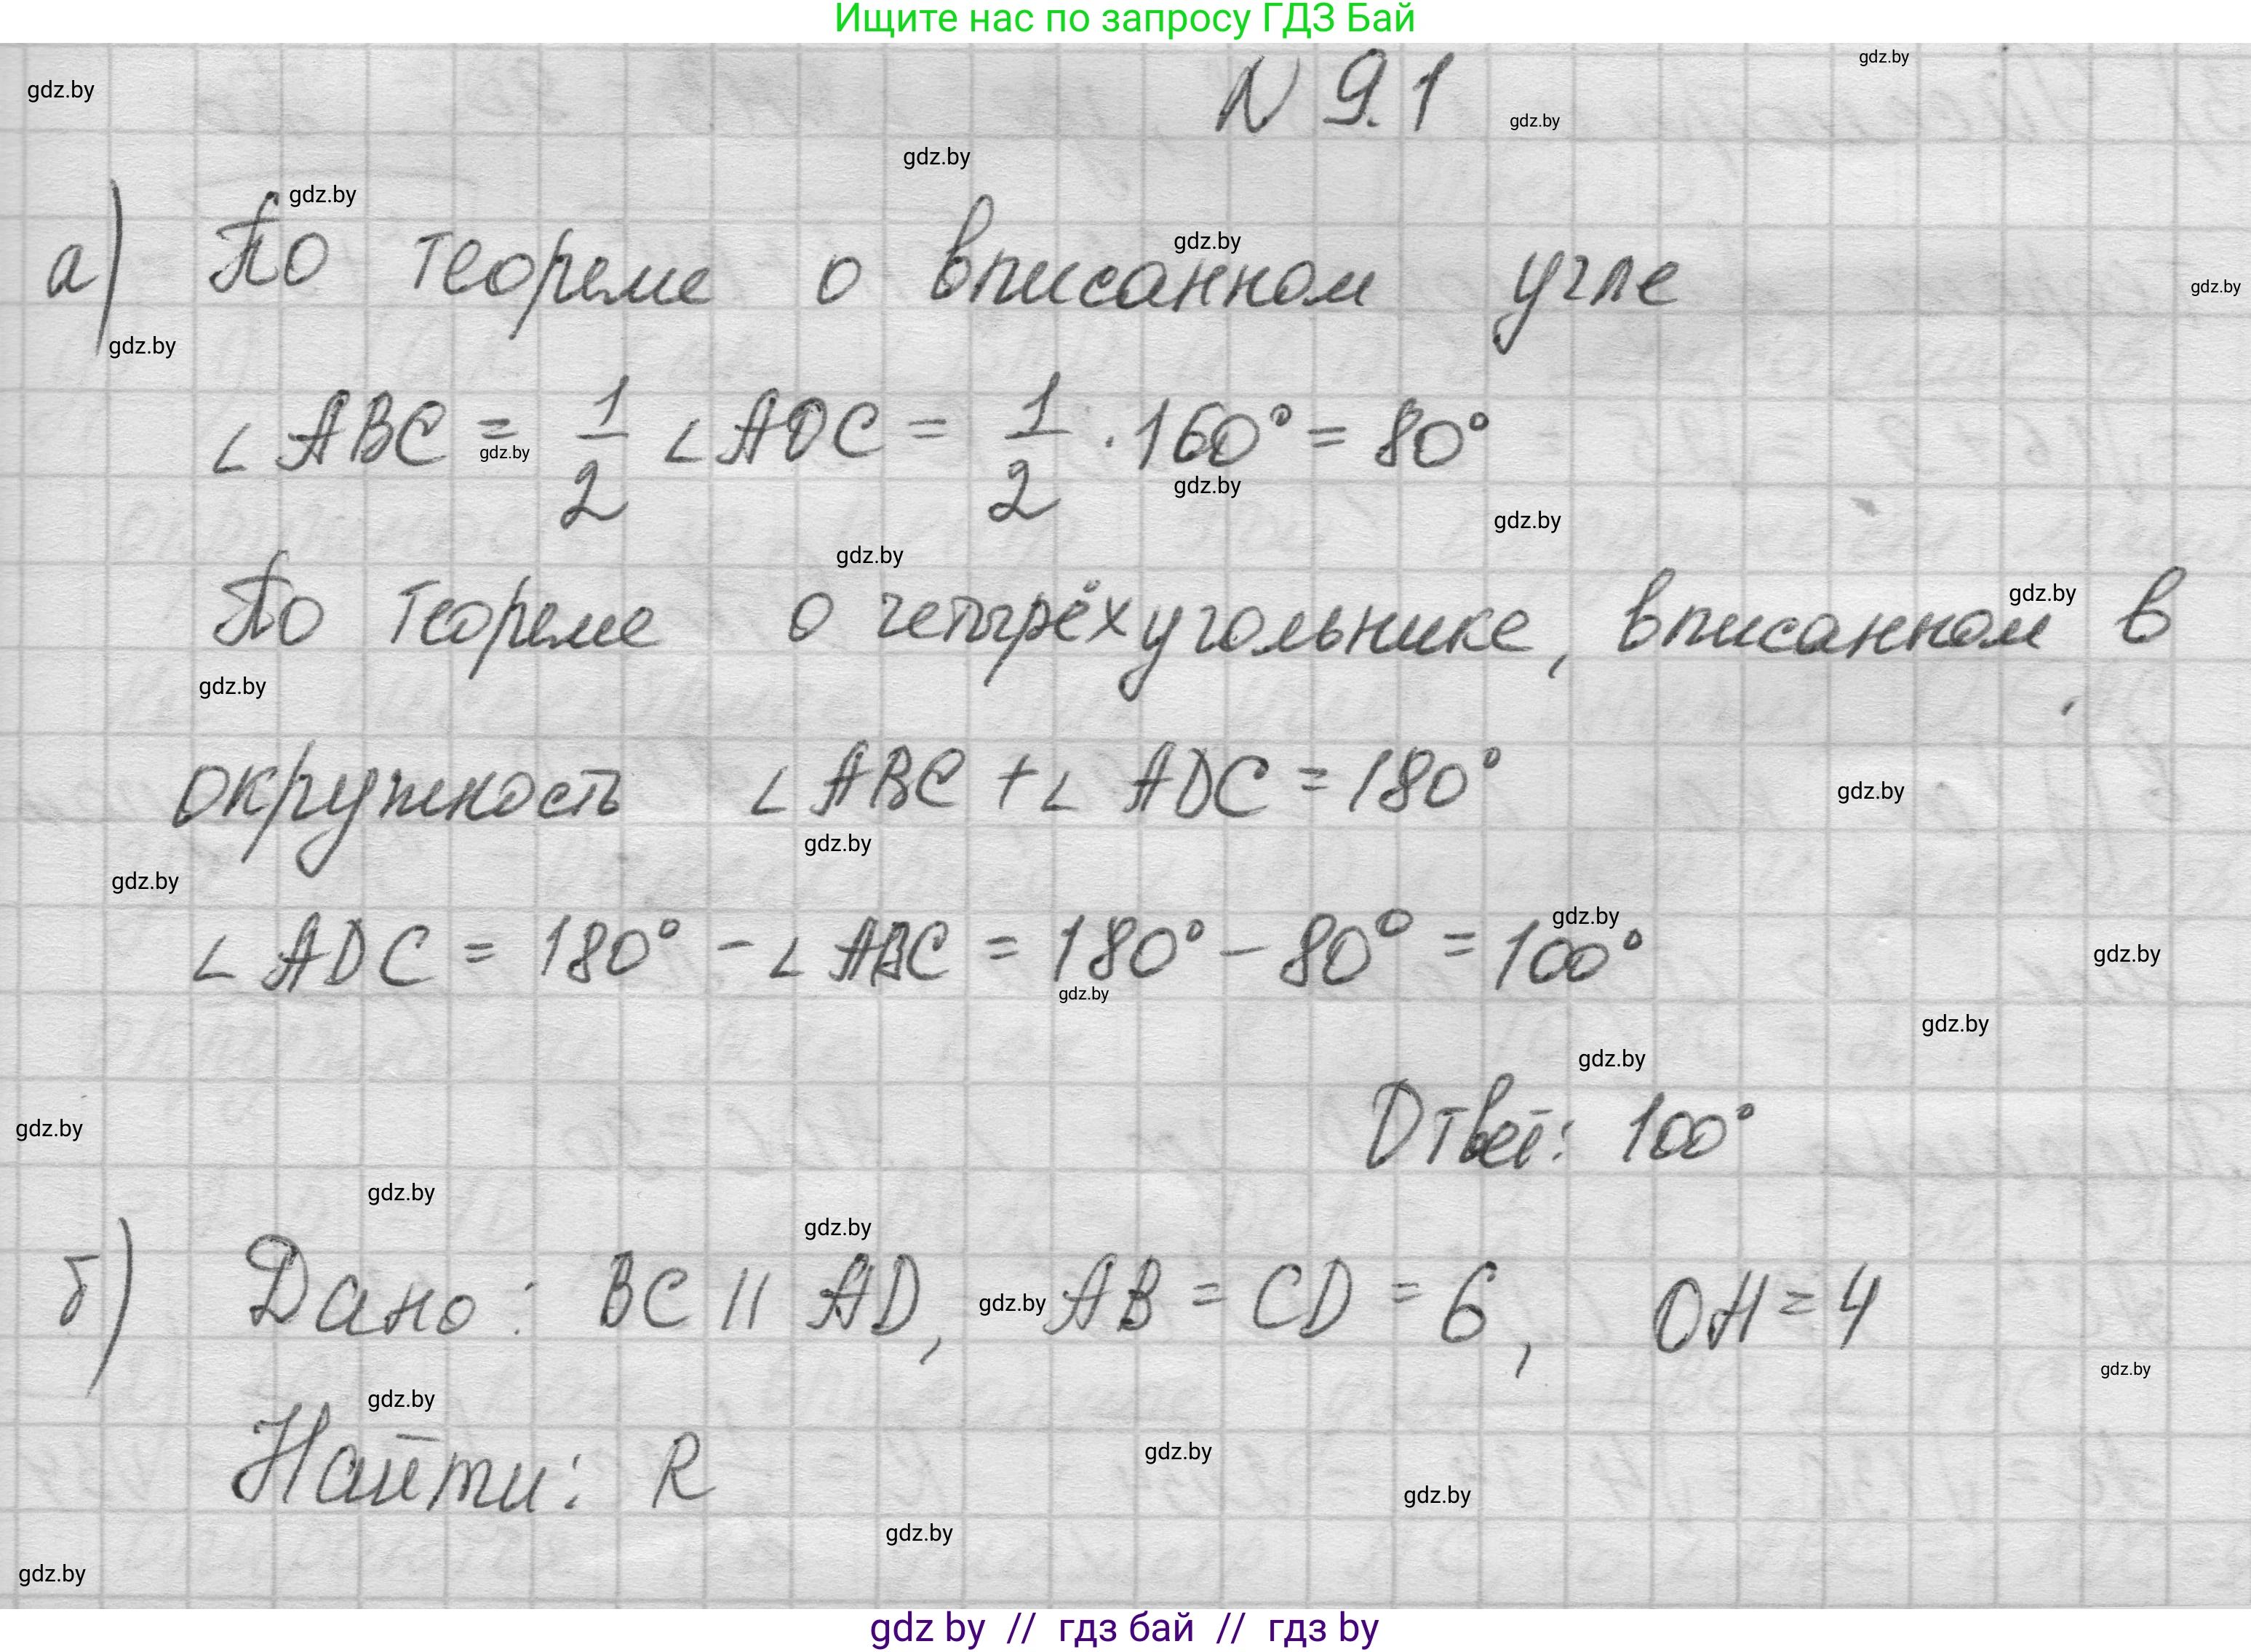 Ищите нас по запросу ГДЗ Бай
N 9.1
а) По теореме о вписанном угле
∠ ABC = 1/2 ∠ AOC = 1/2 · 160° = 80°
По теореме о четырёхугольнике, вписанном в
окружность ∠ ABC + ∠ ADC = 180°
∠ ADC = 180° - ∠ ABC = 180° - 80° = 100°
Ответ: 100°
б) Дано: BC || AD, AB = CD = 6, OH = 4
Найти: R
gdz by // гдз бай // гдз by